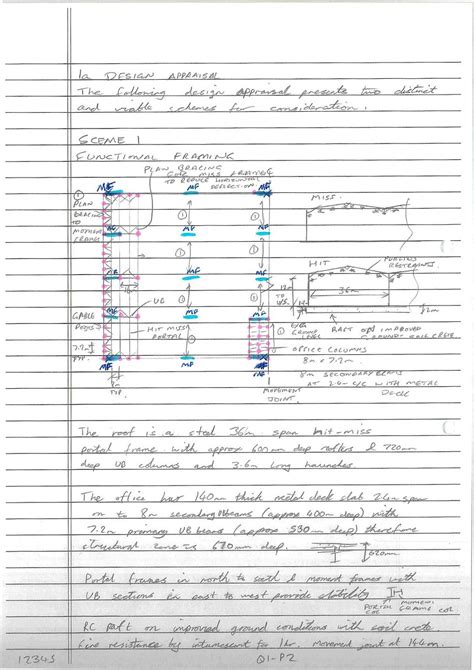 1a DESIGN APPRAISAL
The following design appraisal presents two distinct
and viable schemes for consideration.
SCEME 1
FUNCTIONAL FRAMING
PLAN BRACING
MISS FRAMING
TO REDUCE HORIZONTAL
DEFLECTION
MF
MF
MF
PLAN
BRACING
TO
MOMENT
FRAMES
MISS.
MF
MF
HIT
PURLINS
RESTRAINTS.
MF
MF
36m
12m
TO
U/S
2m
UB
GABLE
POSTS
7.2m
TYP
HIT MISS
PORTAL
MF
MF
GROUND
LEVEL
RAFT ON IMPROVED
OFFICE COLUMNS
8m x 7.2m
8m SECONDARY BEAMS
AT 2.4m C/C WITH METAL
DECK
TYP
MOVEMENT
JOINT.
The roof is a steel 36m span hit-miss
portal frame with approx 600mm deep rafters & 720mm
deep UB columns and 3.6m long haunches.
The office has 140mm thick metal deck slab 2.4m span
on to 8m secondary UB beams (approx 400m deep) with
7.2m primary UB beams (approx 530mm deep) therefore
structural zone is 670mm deep.
Portal frames in north to south & moment frames with
UB sections in east to west provide stability
PORTAL
COL
MOMENT
FRAME
COL
RC raft on improved ground conditions with
Fire resistance by intumescent to 1hr. movement joint at 14.4m
12345
Q1-P2